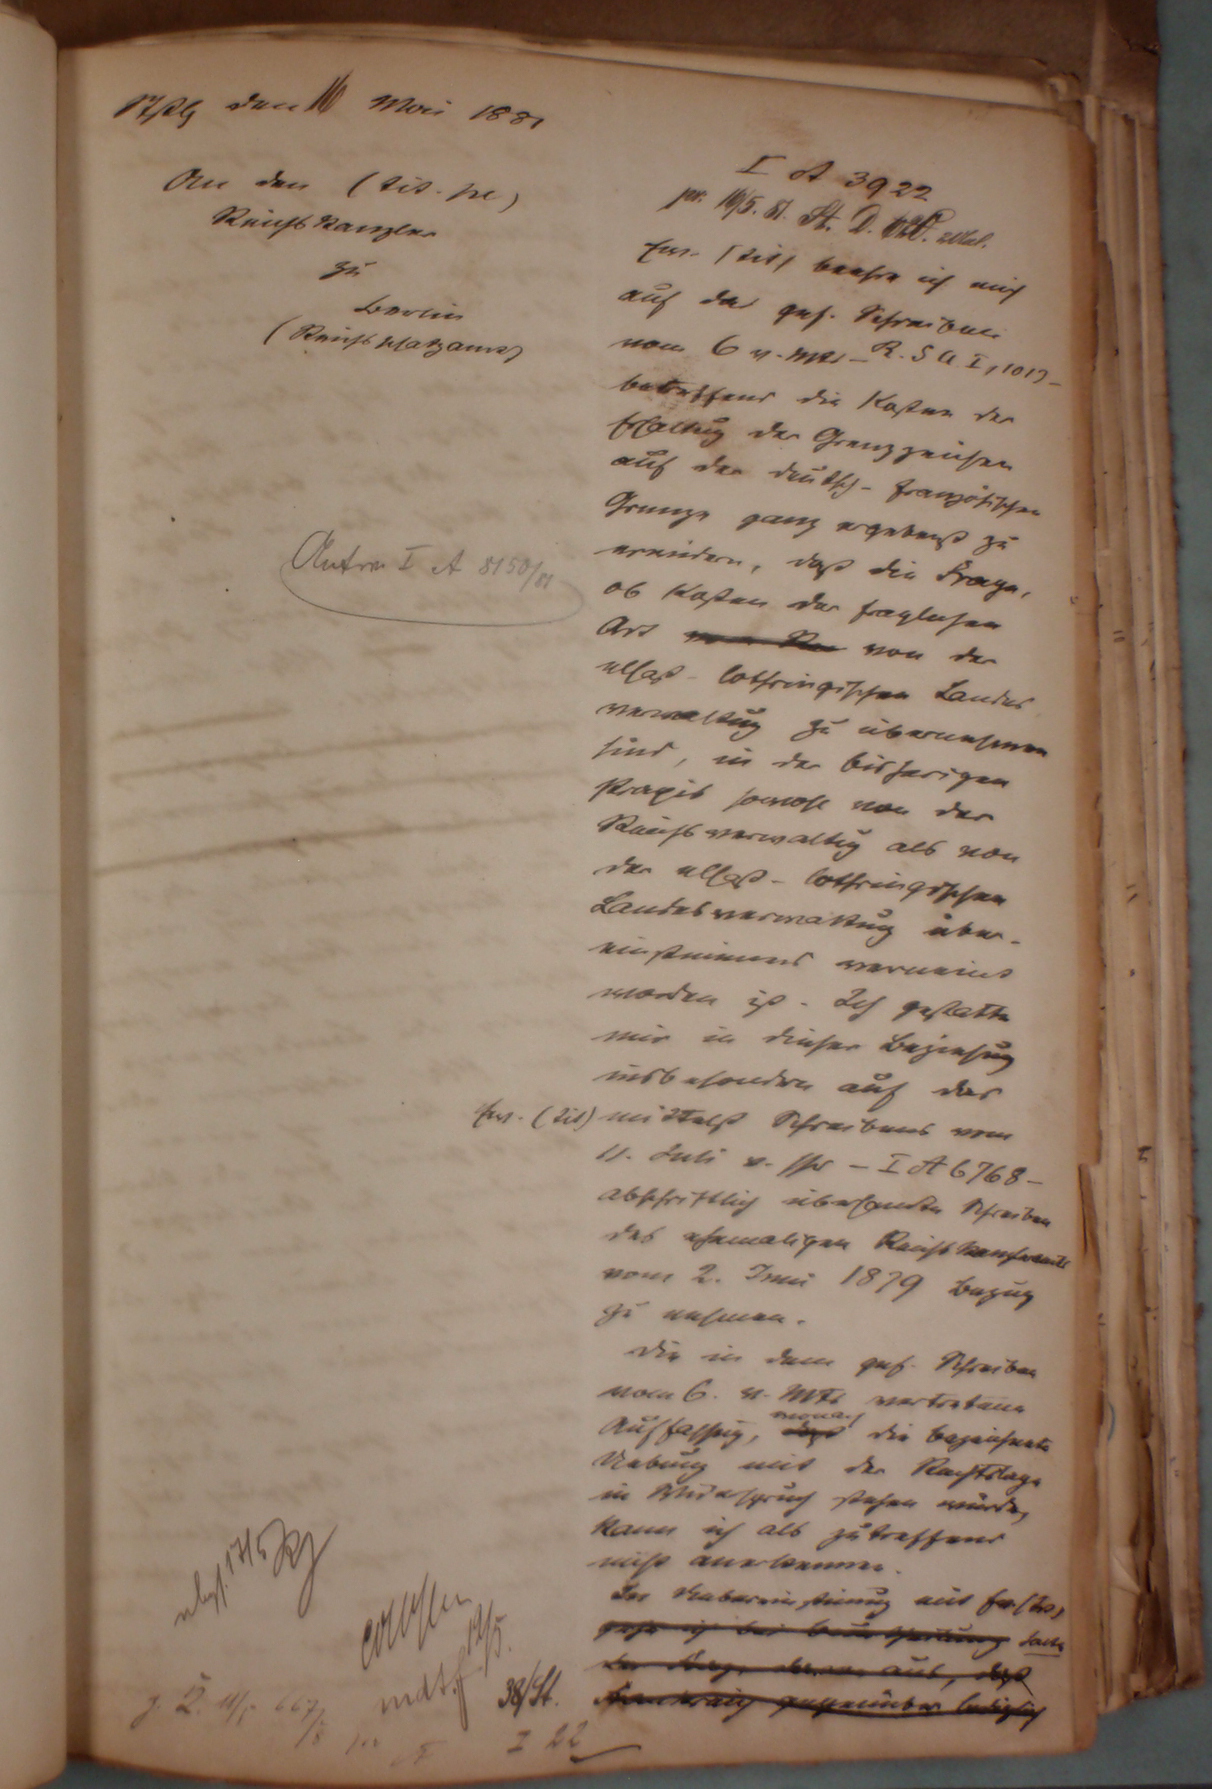 Stßbg den 16 Mai 1881
An den (tit. pl)
Reichskanzler
zu
Berlin
(Reichsschatzamt)
I A 3922
pr. 16/5. 81.
Ew. (tit) beehre ich mich
auf das gef. Schreiben
vom 6 v. Mts – R. S A. I, 1017 –
betreffend die Kosten der
Erhaltung der Grenzzeichen
auf der deutsch-französischen
Grenze ganz ergebenst zu
erwidern, daß die Frage,
ob Kosten der fraglichen
Art von der
elsaß-lothringischen Landes
verwaltung zu übernehmen
sind, in der bisherigen
Praxis sowohl von der
Reichsverwaltung als von
der elsaß-lothringischen
Landesverwaltung über-
einstimmend verneint
worden ist. Ich gestatte
mir in dieser Beziehung
insbesondere auf das
Ew. (tit) mittelst Schreibens vom
11. Juli v. Js – I A 6768 –
abschriftlich übersandte Schreiben
des ehemaligen Reichskanzleramts
vom 2. Juni 1879 Bezug
zu nehmen.
Die in dem gef. Schreiben
vom 6. v. Mts vertretene
Auffassung, daß wonach die bezeichnete
Uebung mit der Rechtslage
in Widerspruch stehen würde,
kann ich als zutreffend
nicht anerkennen.
In Uebereinstimmung mit Ew. (tit)
gehe ich bei Beurtheilung
der Frage davon aus, daß
Frankreich gegenüber lediglich
Antw. I A 8150/81
abgs. 17/5
19/5.
mdt.
38/St.
I 22